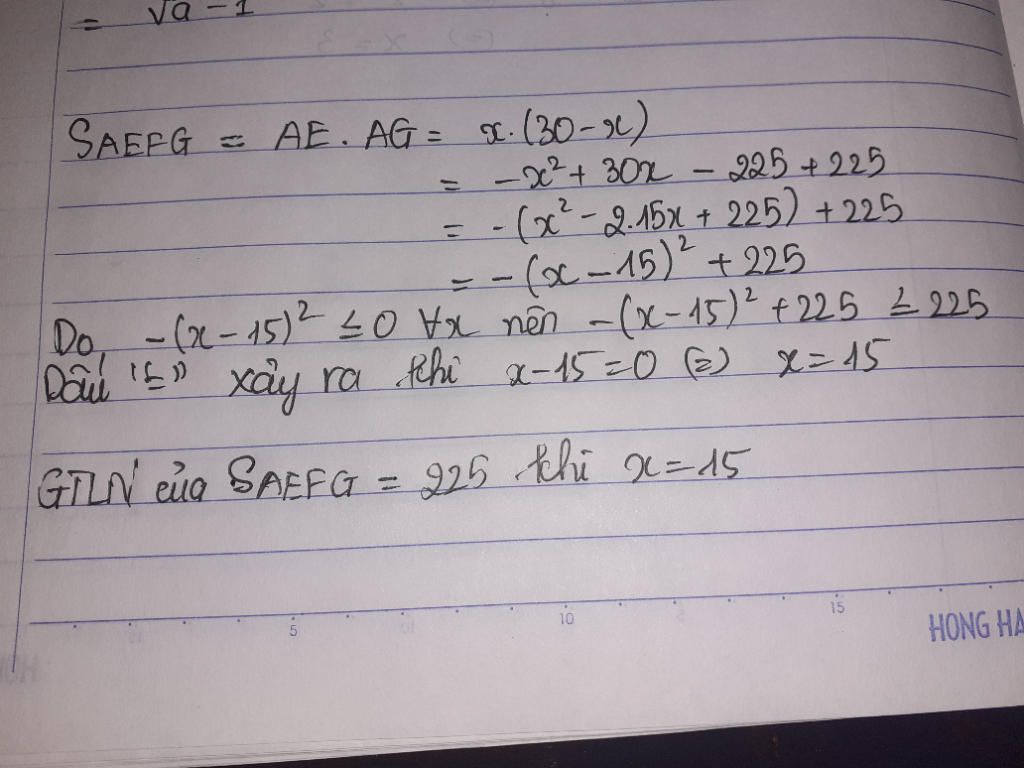 = √a - 1
SAEFG = AE . AG = x.(30-x)
= -x² + 30x - 225 + 225
= -(x² - 2.15x + 225) + 225
= -(x - 15)² + 225
Do, -(x-15)² ≤ 0 ∀x nên -(x-15)² + 225 ≤ 225
Dấu "=" xảy ra khi x-15=0 (=) x=15
GTLN của SAEFG = 225 khi x=15
5 10 15
HONG HA